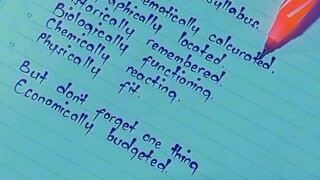 syllabus.
ematically calcurated.
phically located.
torically remembered.
Biologically functioning.
Chemically reacting.
Physically fit.
But don't forget one thing
Economically budgeted.